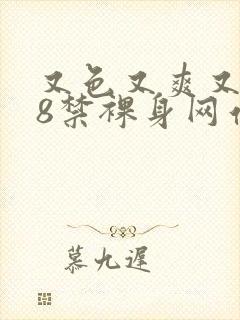 又色又爽又
8禁裸身网
慕九遲